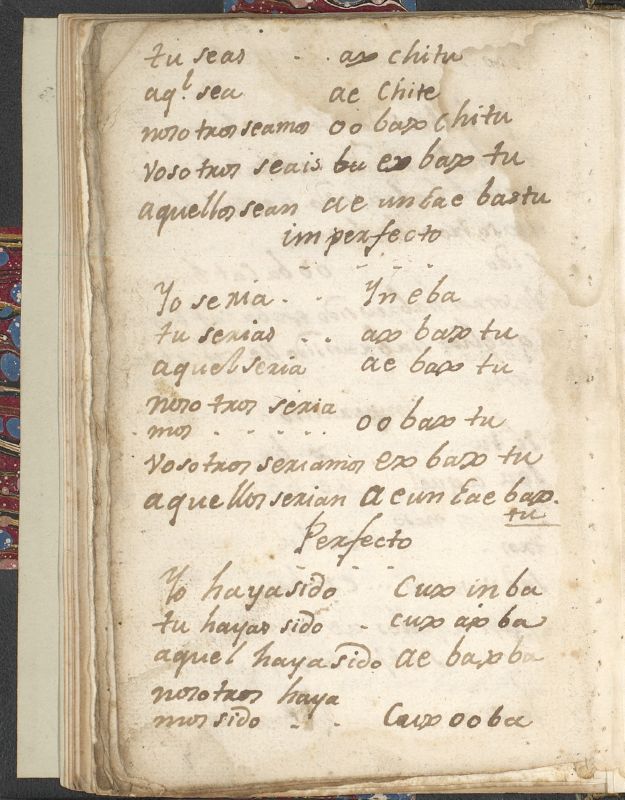 tu seas - - ax chitu
aq.l sea ae chite
nosotros seamos oo bax chitu
vosotros seais ex bax tu
aquellos sean ae untae baxtu
imperfecto
Yo seria - - Yn eba
tu serias - - ax bax tu
aquel seria ae bax tu
nosotros seria
mos - - - - - oo bax tu
vosotros seriamos ex bax tu
aquellos serian ae untae bax
tu
Perfecto
Yo haya sido Cux in ba
tu hayas sido - cux ax ba
aquel haya sido ae bax ba
nosotros haya
mos sido - - Cux oo ba